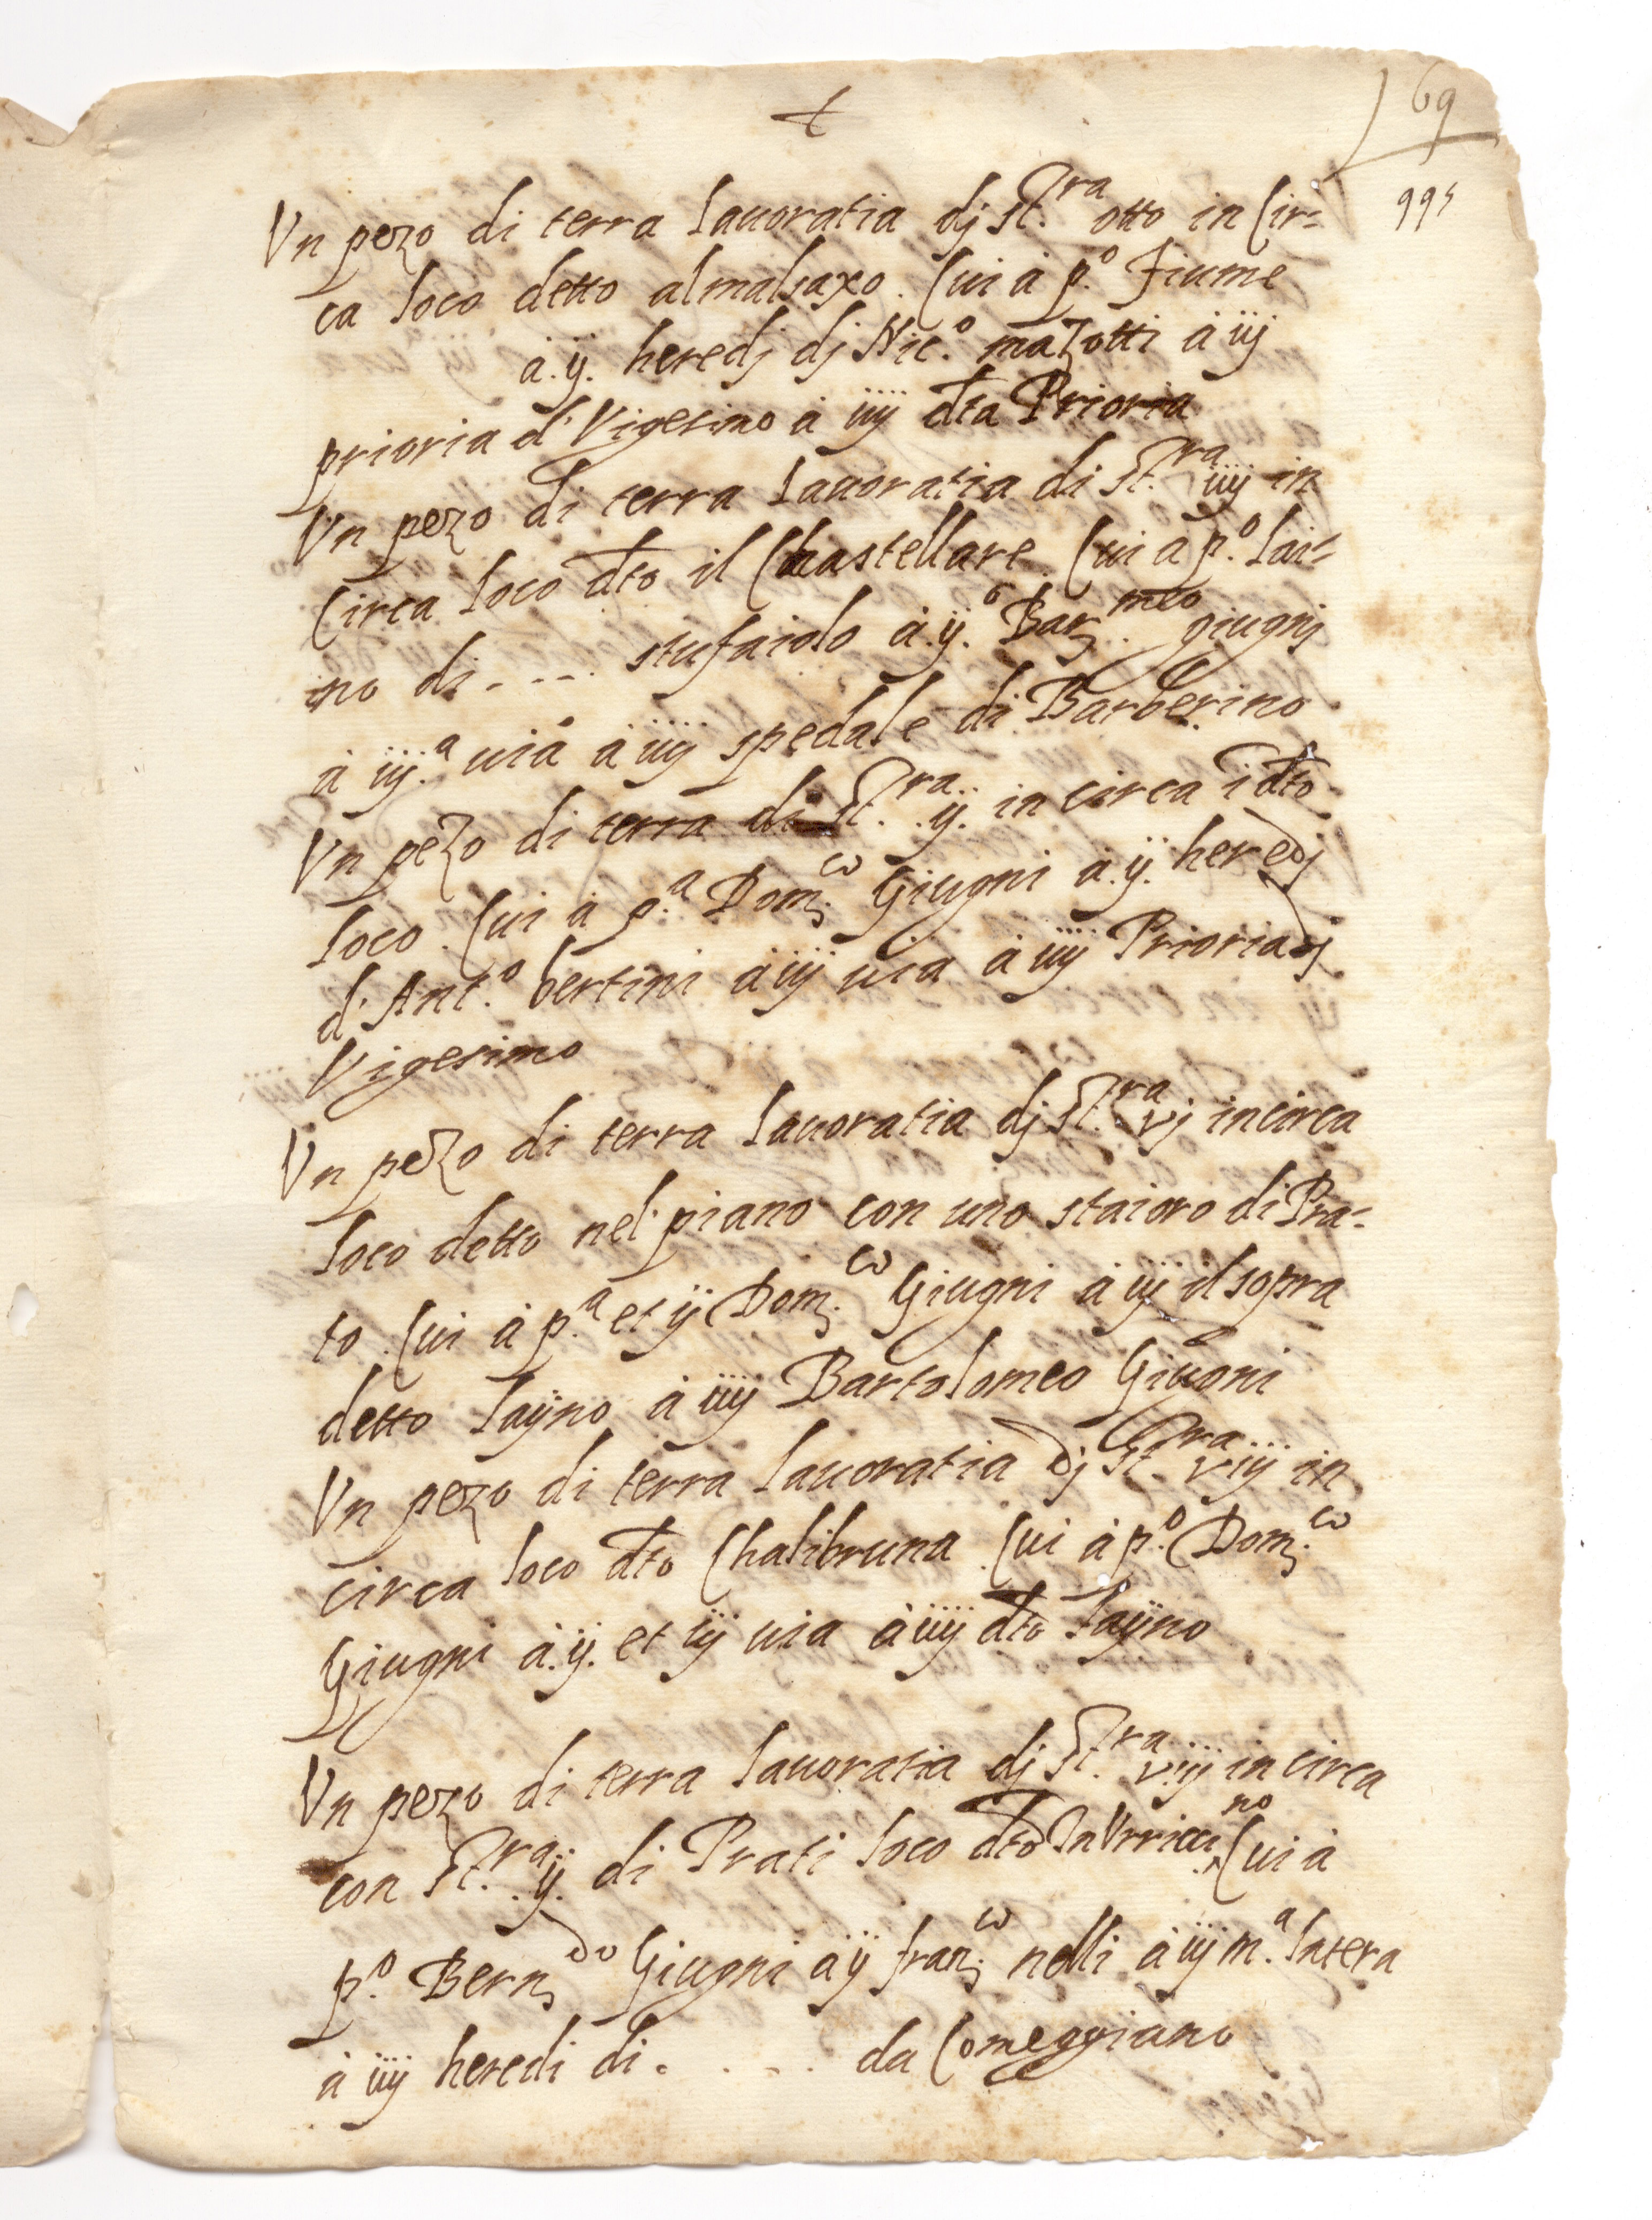 69
995
Vn pezo di terra lauoratia dj st.ra otto in Cir=
ca loco detto almalsaxo. Cui à p.o Fiume
à .ij. heredj dj Nic.o mazotti à iij
prioria d' Vigesimo à iiij dta Prioria
Vn pezo di terra lauoratia di st.ra iiij in
Circa loco dto il Chastellare. Cui a p.o lai=
no di - - - - stufaiolo à .ij.o Bar.meo giugnj
à iij.a uia à iiij spedale di Barberino
Vn pezo di terra di st.ra .ij. in circa i dto
loco. Cui à p.a Dom.co Giugni à .ij. heredj
d' Ant.o bertini à iij uia à iiij Prioria dj
Vigesimo
Vn pezo di terra lauoratia dj st.ra vj incirca
loco detto nel piano con uno staioro di Pra=
to. Cui à p.a et ij Dom.co Giugni à iij il sopra
detto laijno à iiij Bartolomeo Giugni
Vn pezo di terra lauoratia dj st.ra viij in
circa loco dto Chalibruna. Cui à p.o Dom.co
Giugni à .ij. et iij uia à iiij dto laijno
Vn pezo di terra lauoratia dj st.ra viij in circa
con st.ra .ij. di Prati loco dto In Vrriccino Cui à
p.o Bern.do Giugni à ij fran.co nelli à iij m.a Intera
à iiij heredi di . . . . da Comeggiano